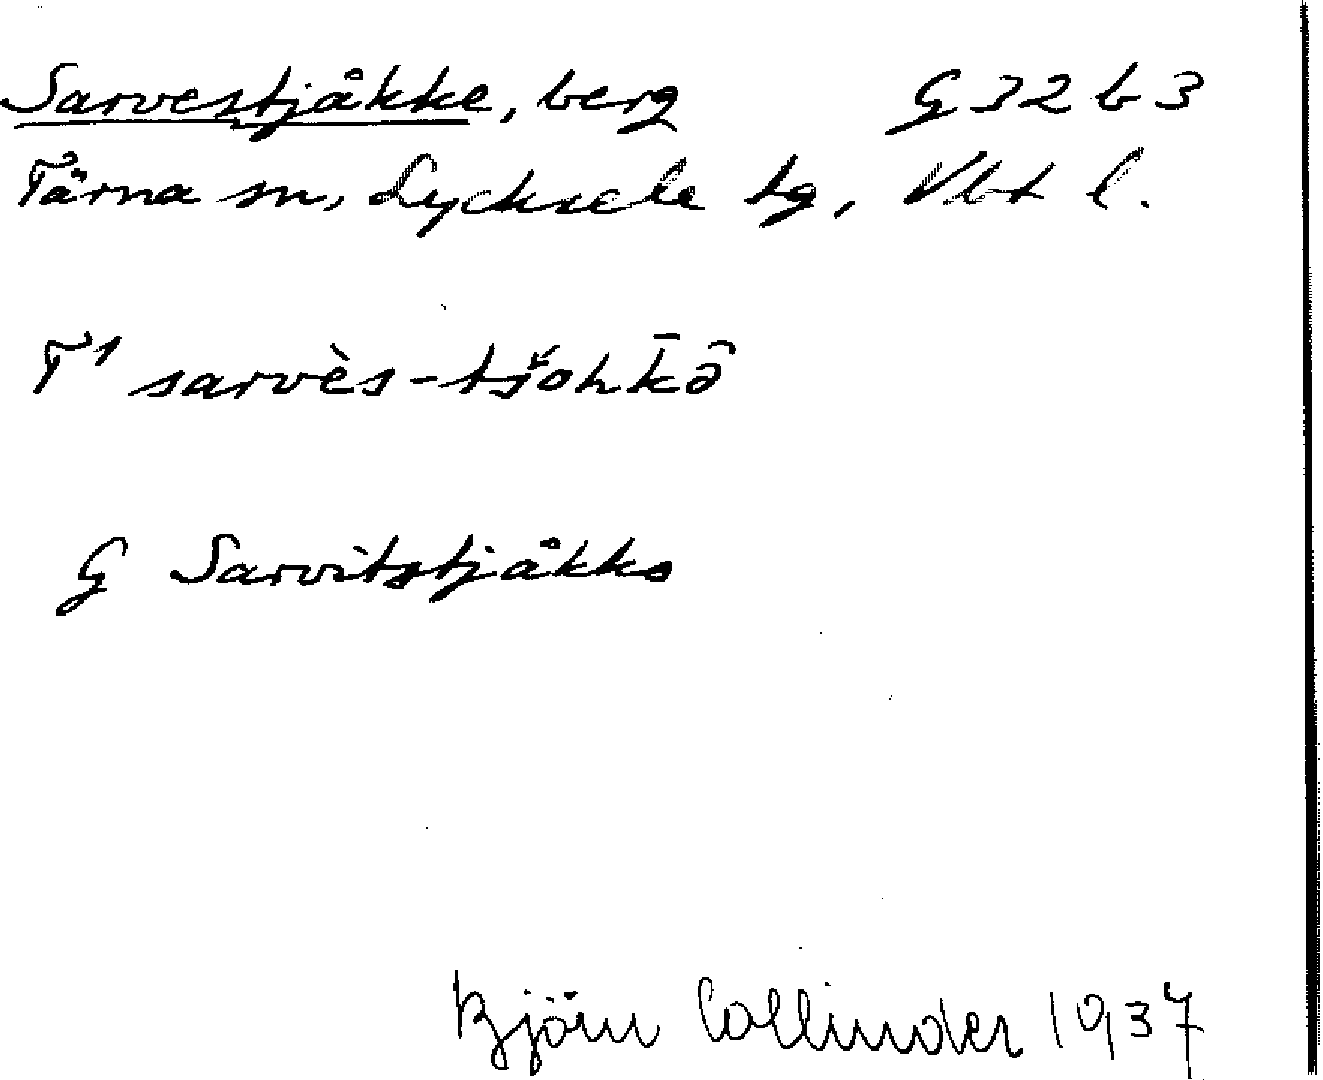 Sarvestjåkke, berg G 32 b 3
Tärna sn, Lycksele tg, Vbt l.
T¹ sarvès-tšohk̄ə̂
G Sarvitstjåkko
Björn Collinder 1937